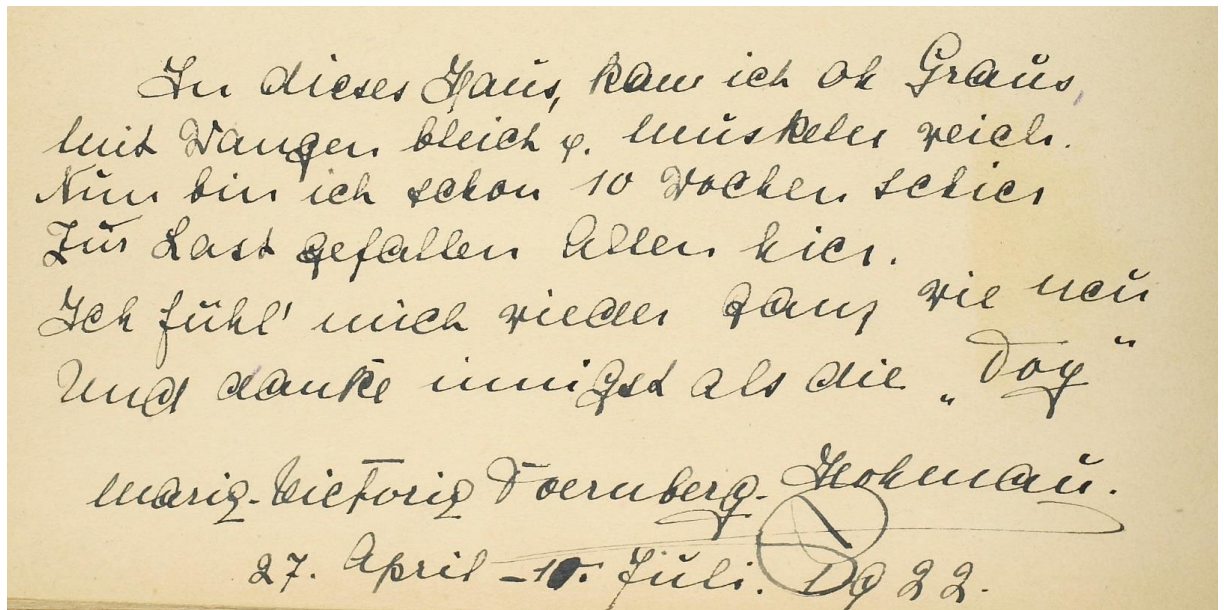 In dieses Haus, kam ich oh Graus,
mit Wangen bleich u. Muskeln weich.
Nun bin ich schon 10 Wochen schier
Zur Last gefallen Allen hier.
Ich fühl' mich wieder ganz wie neu
Und danke innigst als die „Doy“
Maria-Victoria Doernberg-Hohenau.
27. April – 10. Juli. 1922.